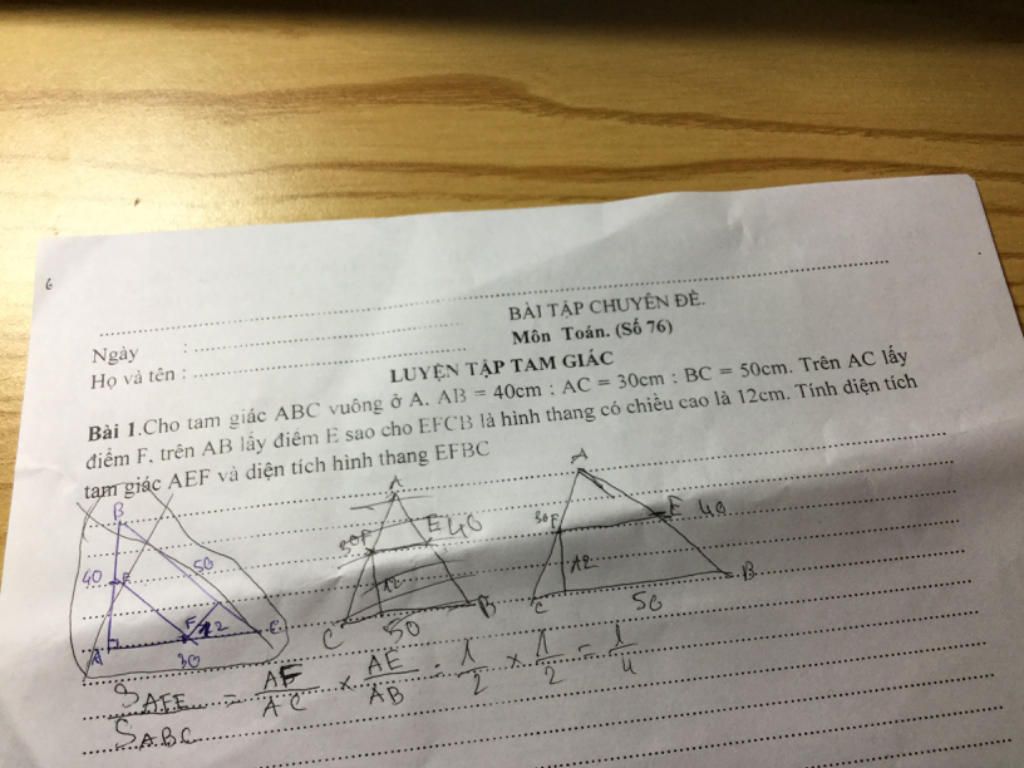 6
BÀI TẬP CHUYÊN ĐỀ.
Ngày : Môn Toán. (Số 76)
Họ và tên :
LUYỆN TẬP TAM GIÁC
Bài 1.Cho tam giác ABC vuông ở A. AB = 40cm : AC = 30cm : BC = 50cm. Trên AC lấy
điểm F, trên AB lấy điểm E sao cho EFCB là hình thang có chiều cao là 12cm. Tính diện tích
tam giác AEF và diện tích hình thang EFBC
B 40 E 50 F 12 A 30 C
A 30 F E 40 12 C 50 B
A 30 F E 40 12 C 50 B
S AFE / S ABC = AF / AC × AE / AB = 1/2 × 1/2 = 1/4